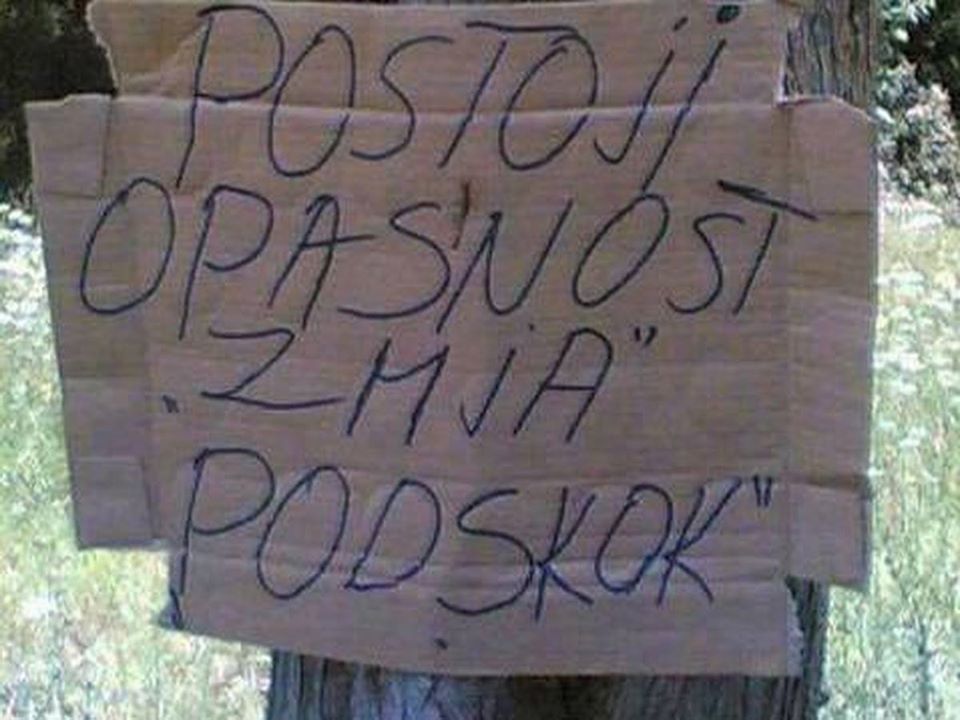 POSTOJI
OPASNOST
„ZMJA"
„PODSKOK"